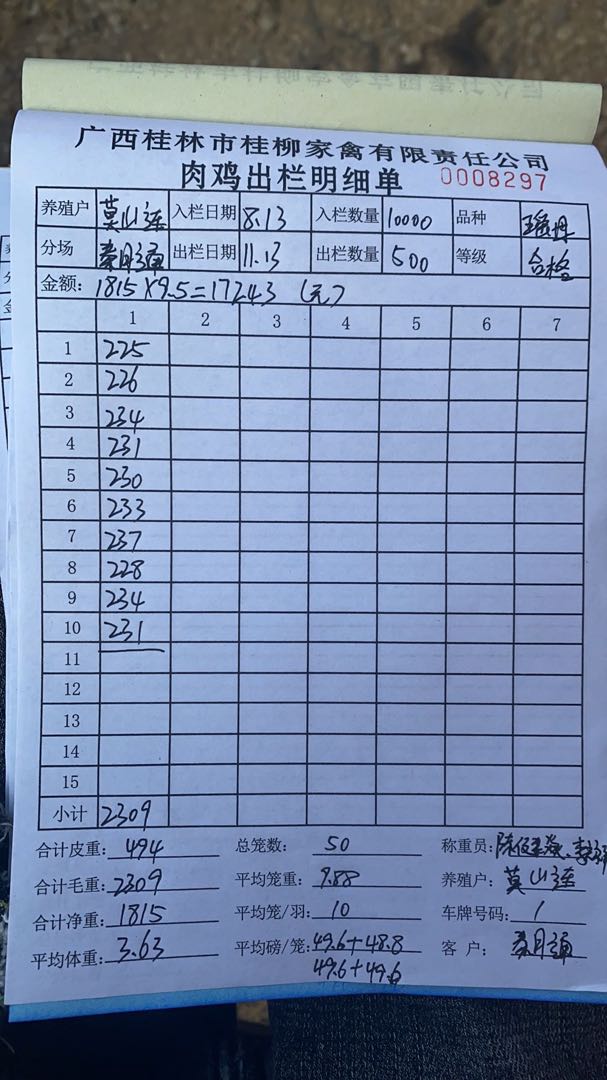 广西桂林市桂柳家禽有限责任公司
肉鸡出栏明细单 0008297
养殖户 莫山连 入栏日期 8.13 入栏数量 10000 品种 瑶丹
分场 秦月通 出栏日期 11.13 出栏数量 500 等级 合格
金额: 1815×9.5=17243 (元)
1 2 3 4 5 6 7
1 225
2 226
3 234
4 231
5 230
6 233
7 237
8 228
9 234
10 231
11
12
13
14
15
小计 2309
合计皮重: 494 总笼数: 50 称重员:
合计毛重: 2309 平均笼重: 9.88 养殖户: 莫山连
合计净重: 1815 平均笼/羽: 10 车牌号码: 1
平均体重: 3.63 平均磅/笼: 49.6+48.8 客户: 秦月通
49.6+49.6